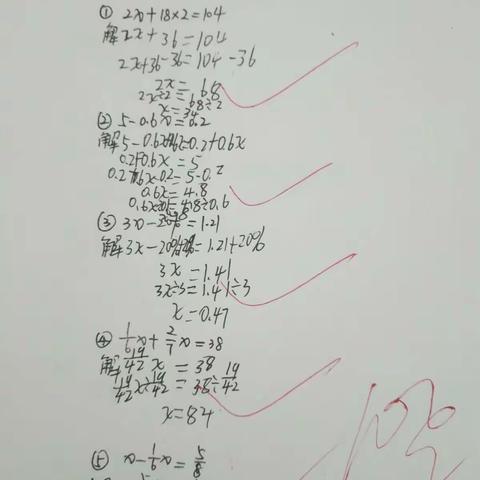 ① 2x+18×2=104
解2x+36=104
2x+36-36=104-36
2x=68
2x÷2=68÷2
x=34
② 5-0.6x=0.2
解5-0.6x+0.6x=0.2+0.6x
0.2+0.6x=5
0.2+0.6x-0.2=5-0.2
0.6x=4.8
0.6x÷0.6=4.8÷0.6
③ 3x-20%=1.21
解3x-20%+20%=1.21+20%
3x=1.41
3x÷3=1.41÷3
x=0.47
④ 1/6x+2/7x=38
解19/42x=38
19/42x÷19/42=38÷19/42
x=84
⑤ x-1/6x=5/8